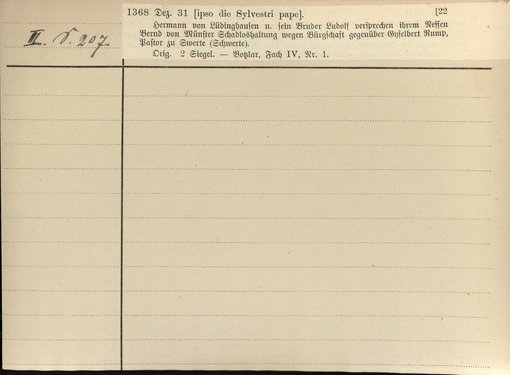 1368 Dez. 31 [ipso die Sylvestri pape]. [22
Hermann von Lüdinghausen u. sein Bruder Ludolf versprechen ihrem Neffen
Bernd von Münster Schadloshaltung wegen Bürgschaft gegenüber Gyselbert Rump,
Pastor zu Swerte (Schwerte).
Orig. 2 Siegel. — Botzlar, Fach IV, Nr. 1.
II. S. 207.